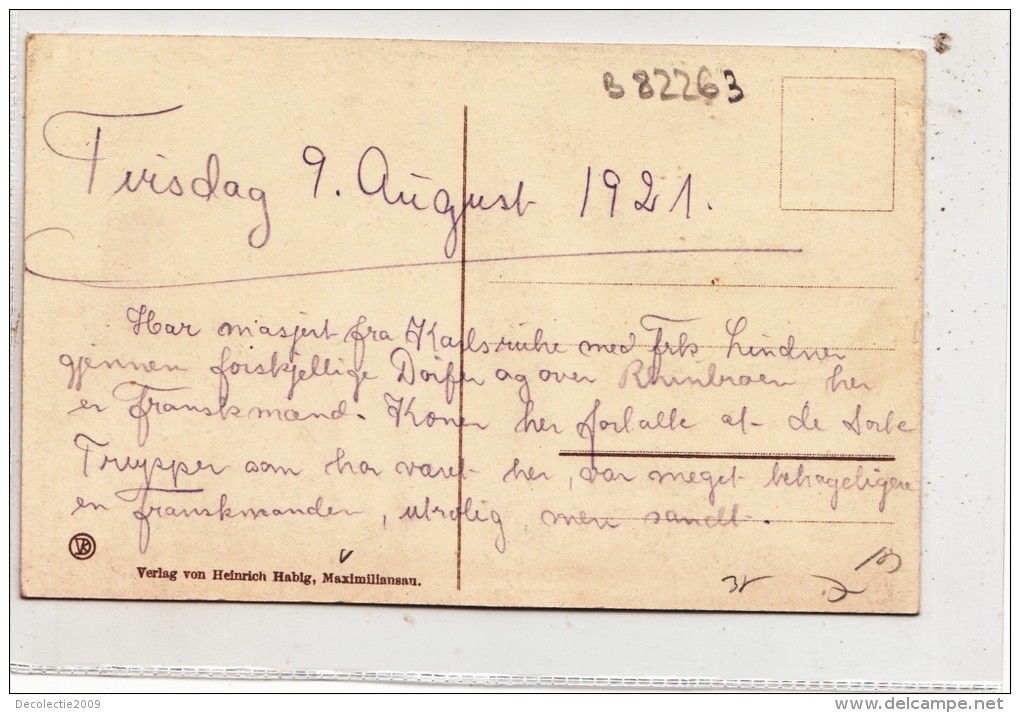 B 82263
Tirsdag 9. August 1921.
Har masjert fra Karlsruhe med Frk Lindner
gjennem forskjellige Dörfer og over Rhinbroen her
er Franskmænd. Konen her fortalte at de sorte
Trupper som har været her, var meget behageligere
en Franskmanden, utrolig, men sandt.
Verlag von Heinrich Habig, Maximiliansau.
Decolectie2009
www.delcampe.net